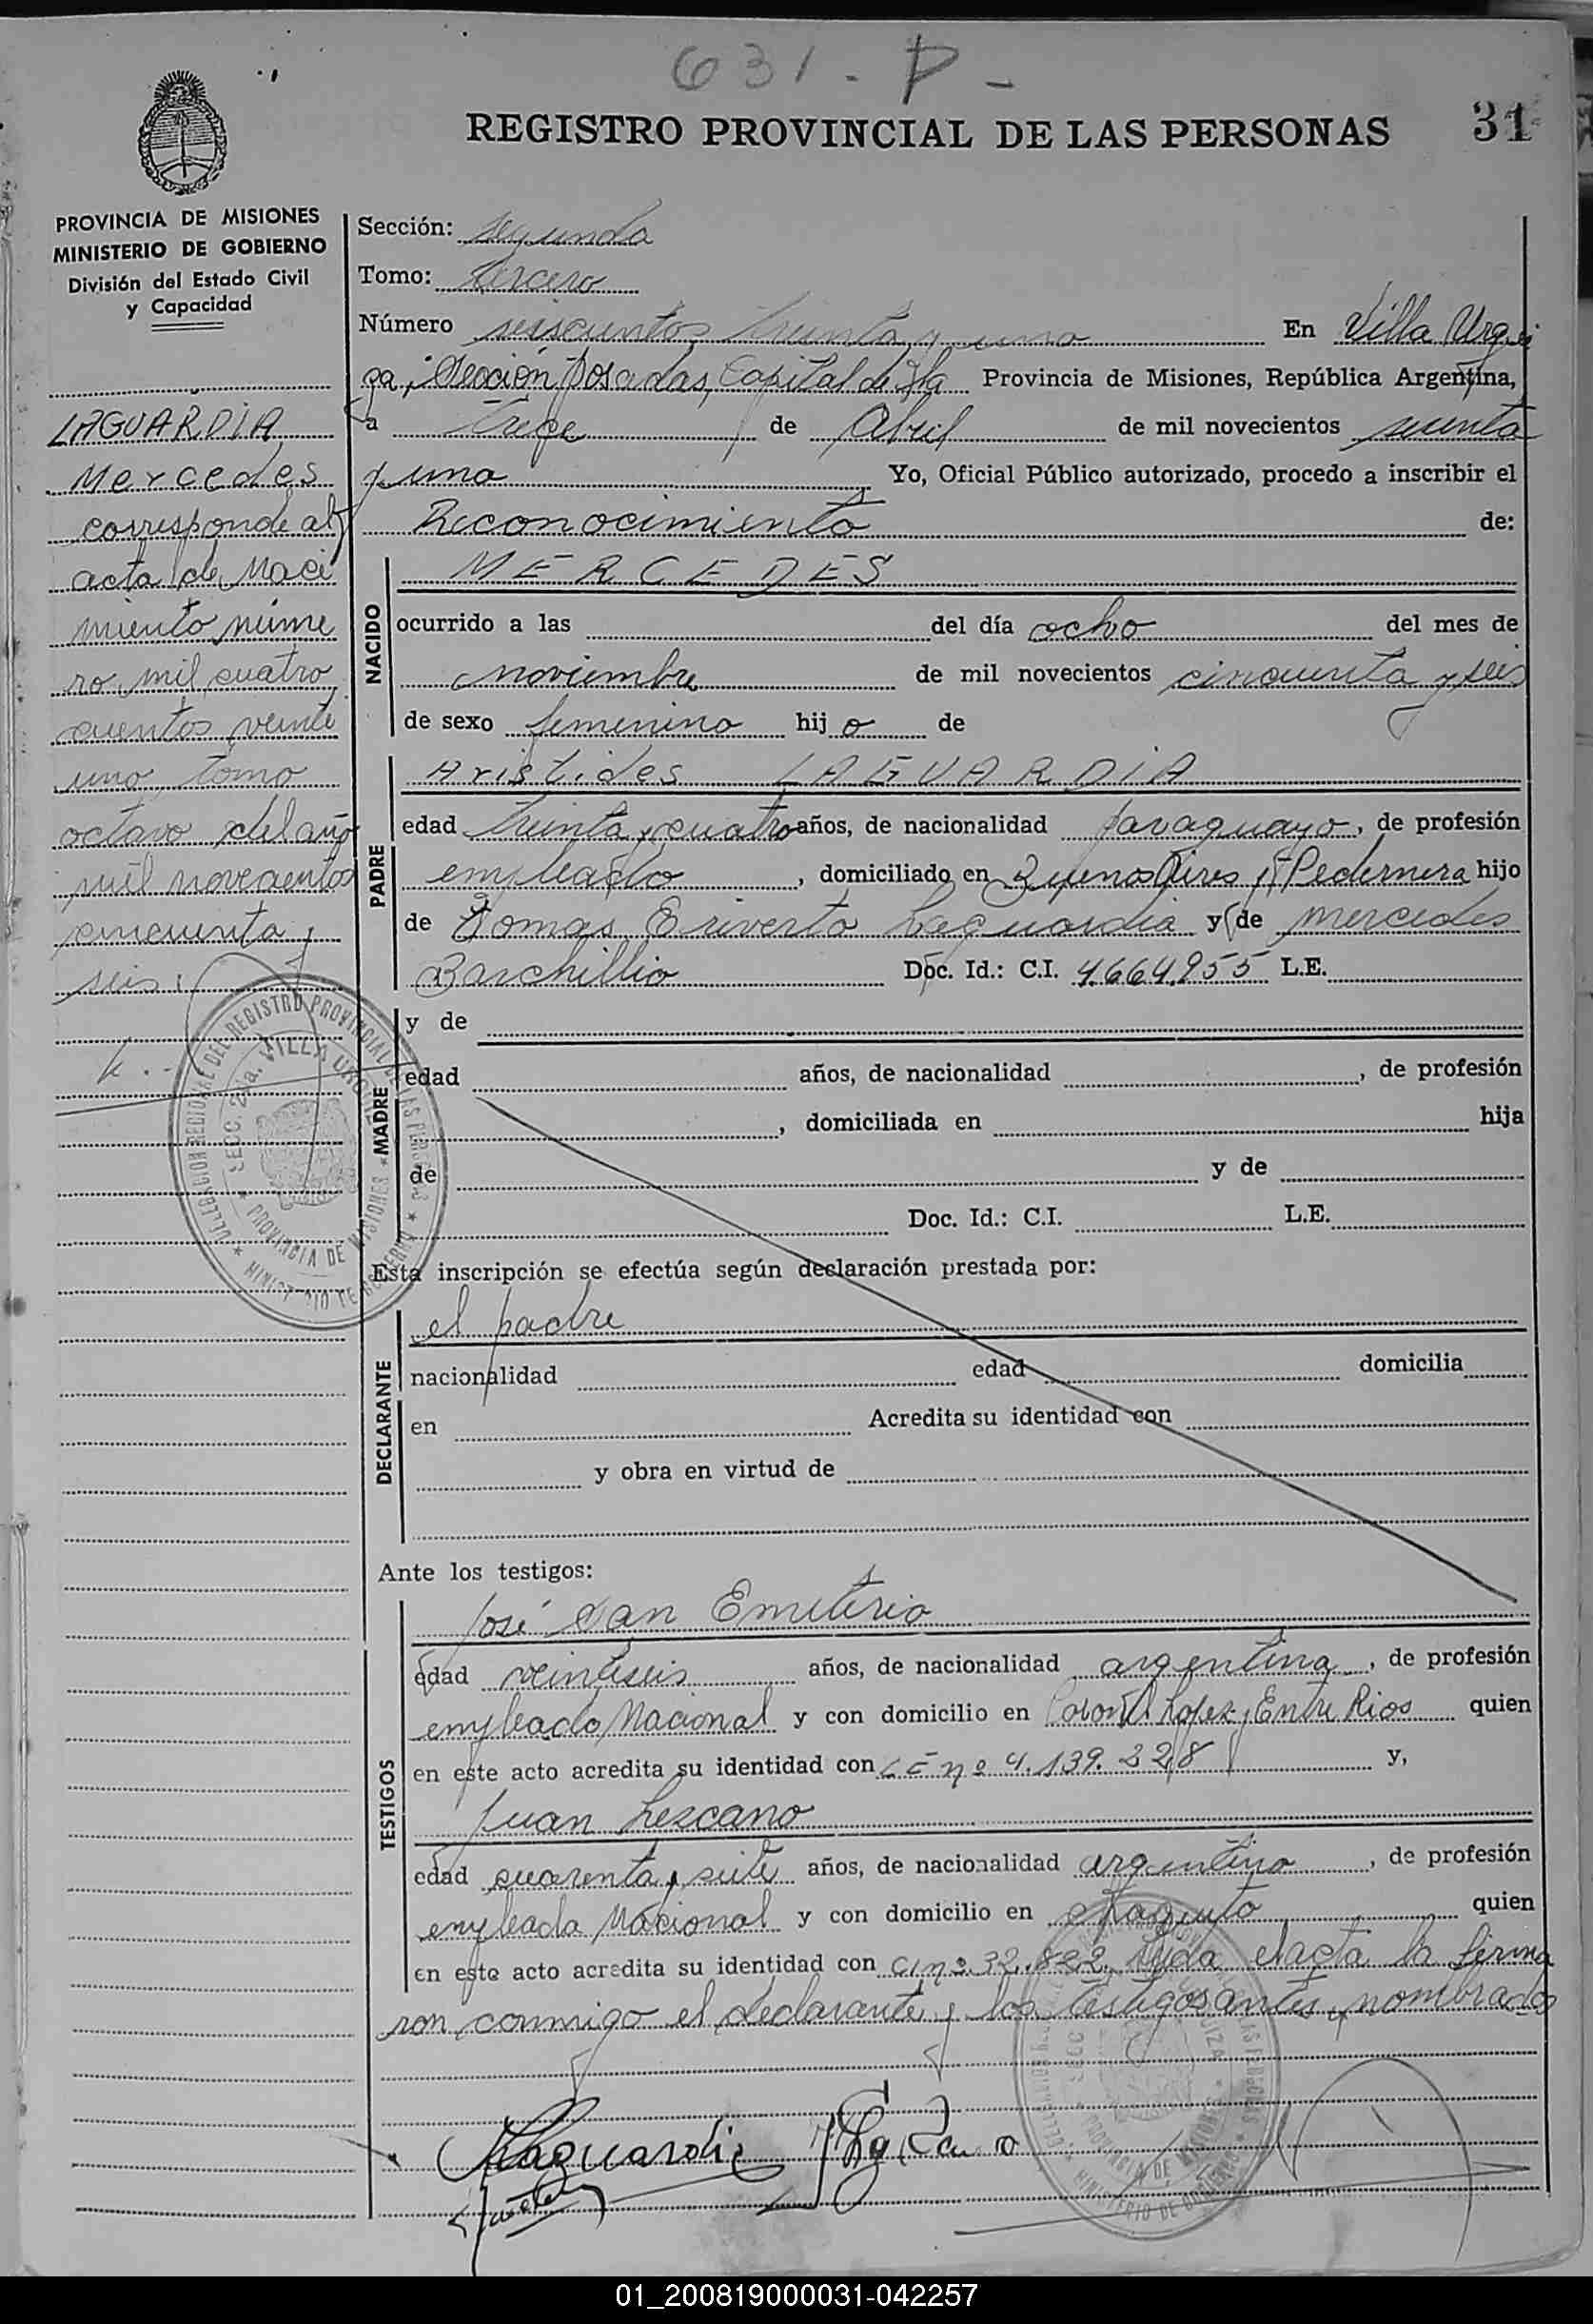 631 - P -
REGISTRO PROVINCIAL DE LAS PERSONAS
31
PROVINCIA DE MISIONES
MINISTERIO DE GOBIERNO
División del Estado Civil
y Capacidad
LAGUARDIA
Mercedes
corresponde al
acta de Naci
miento núme
ro mil cuatro
cientos veinti
uno, tomo
octavo del año
mil novecientos
cincuenta y
seis.
Sección: segunda
Tomo: tercero
Número seiscientos treinta y uno En Villa Urqui
za, Sección Posadas, Capital de la Provincia de Misiones, República Argentina,
a trece de Abril de mil novecientos sesenta
y uno Yo, Oficial Público autorizado, procedo a inscribir el
Reconocimiento de:
NACIDO
MERCEDES
ocurrido a las del día ocho del mes de
noviembre de mil novecientos cincuenta y seis
de sexo femenino hij o de
PADRE
Aristides LAGUARDIA
edad treinta y cuatro años, de nacionalidad paraguayo, de profesión
empleado, domiciliado en Buenos Aires y Pedernera hijo
de Tomas Eriverto Laguardia y de Mercedes
Barchillio Doc. Id.: C.I. 4.664.955 L.E.
MADRE
y de
edad años, de nacionalidad , de profesión
, domiciliada en hija
de y de
Doc. Id.: C.I. L.E.
Esta inscripción se efectúa según declaración prestada por:
DECLARANTE
el padre
nacionalidad edad domicilia
en Acredita su identidad con
y obra en virtud de
Ante los testigos:
TESTIGOS
José San Emeterio
edad veintiseis años, de nacionalidad argentina, de profesión
empleado Nacional y con domicilio en Coronel Lopez y Entre Rios quien
en este acto acredita su identidad con LE nº 4.139.228 y,
Juan Lezcano
edad cuarenta y siete años, de nacionalidad argentino, de profesión
empleado Nacional y con domicilio en quien
en este acto acredita su identidad con CI nº 32.822. Leida el acta la firma
ron conmigo el declarante y los testigos antes nombrados
Laguardia
DELEGACION REGIONAL DEL REGISTRO PROVINCIAL DE LAS PERSONAS
SECC. 2da. VILLA URQUIZA
PROVINCIA DE MISIONES
MINISTERIO DE GOBIERNO
01_200819000031-042257